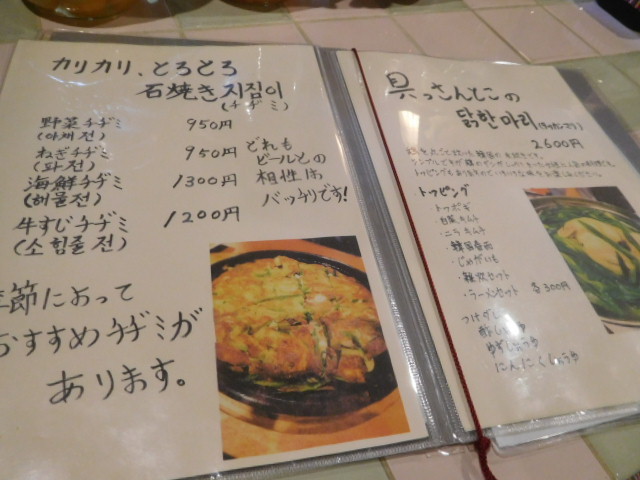 カリカリ、とろとろ
石焼き지짐이
(チヂミ)
野菜チヂミ 950円
(야채전)
ねぎチヂミ 950円
(파전)
海鮮チヂミ 1300円
(해물전)
牛すじチヂミ 1200円
(소힘줄전)
どれも
ビールとの
相性は
バッチリです!
節によって
おすすめチヂミが
あります。
具っさんとこの
닭한마리
2600円
トッピング
・トッポギ
・白菜キムチ
・ニラキムチ
・韓国春雨
・じゃがいも
・雑炊セット
・ラーメンセット 各300円
つけダレ
酢しょうゆ
ゆずしょうゆ
にんにくしょうゆ